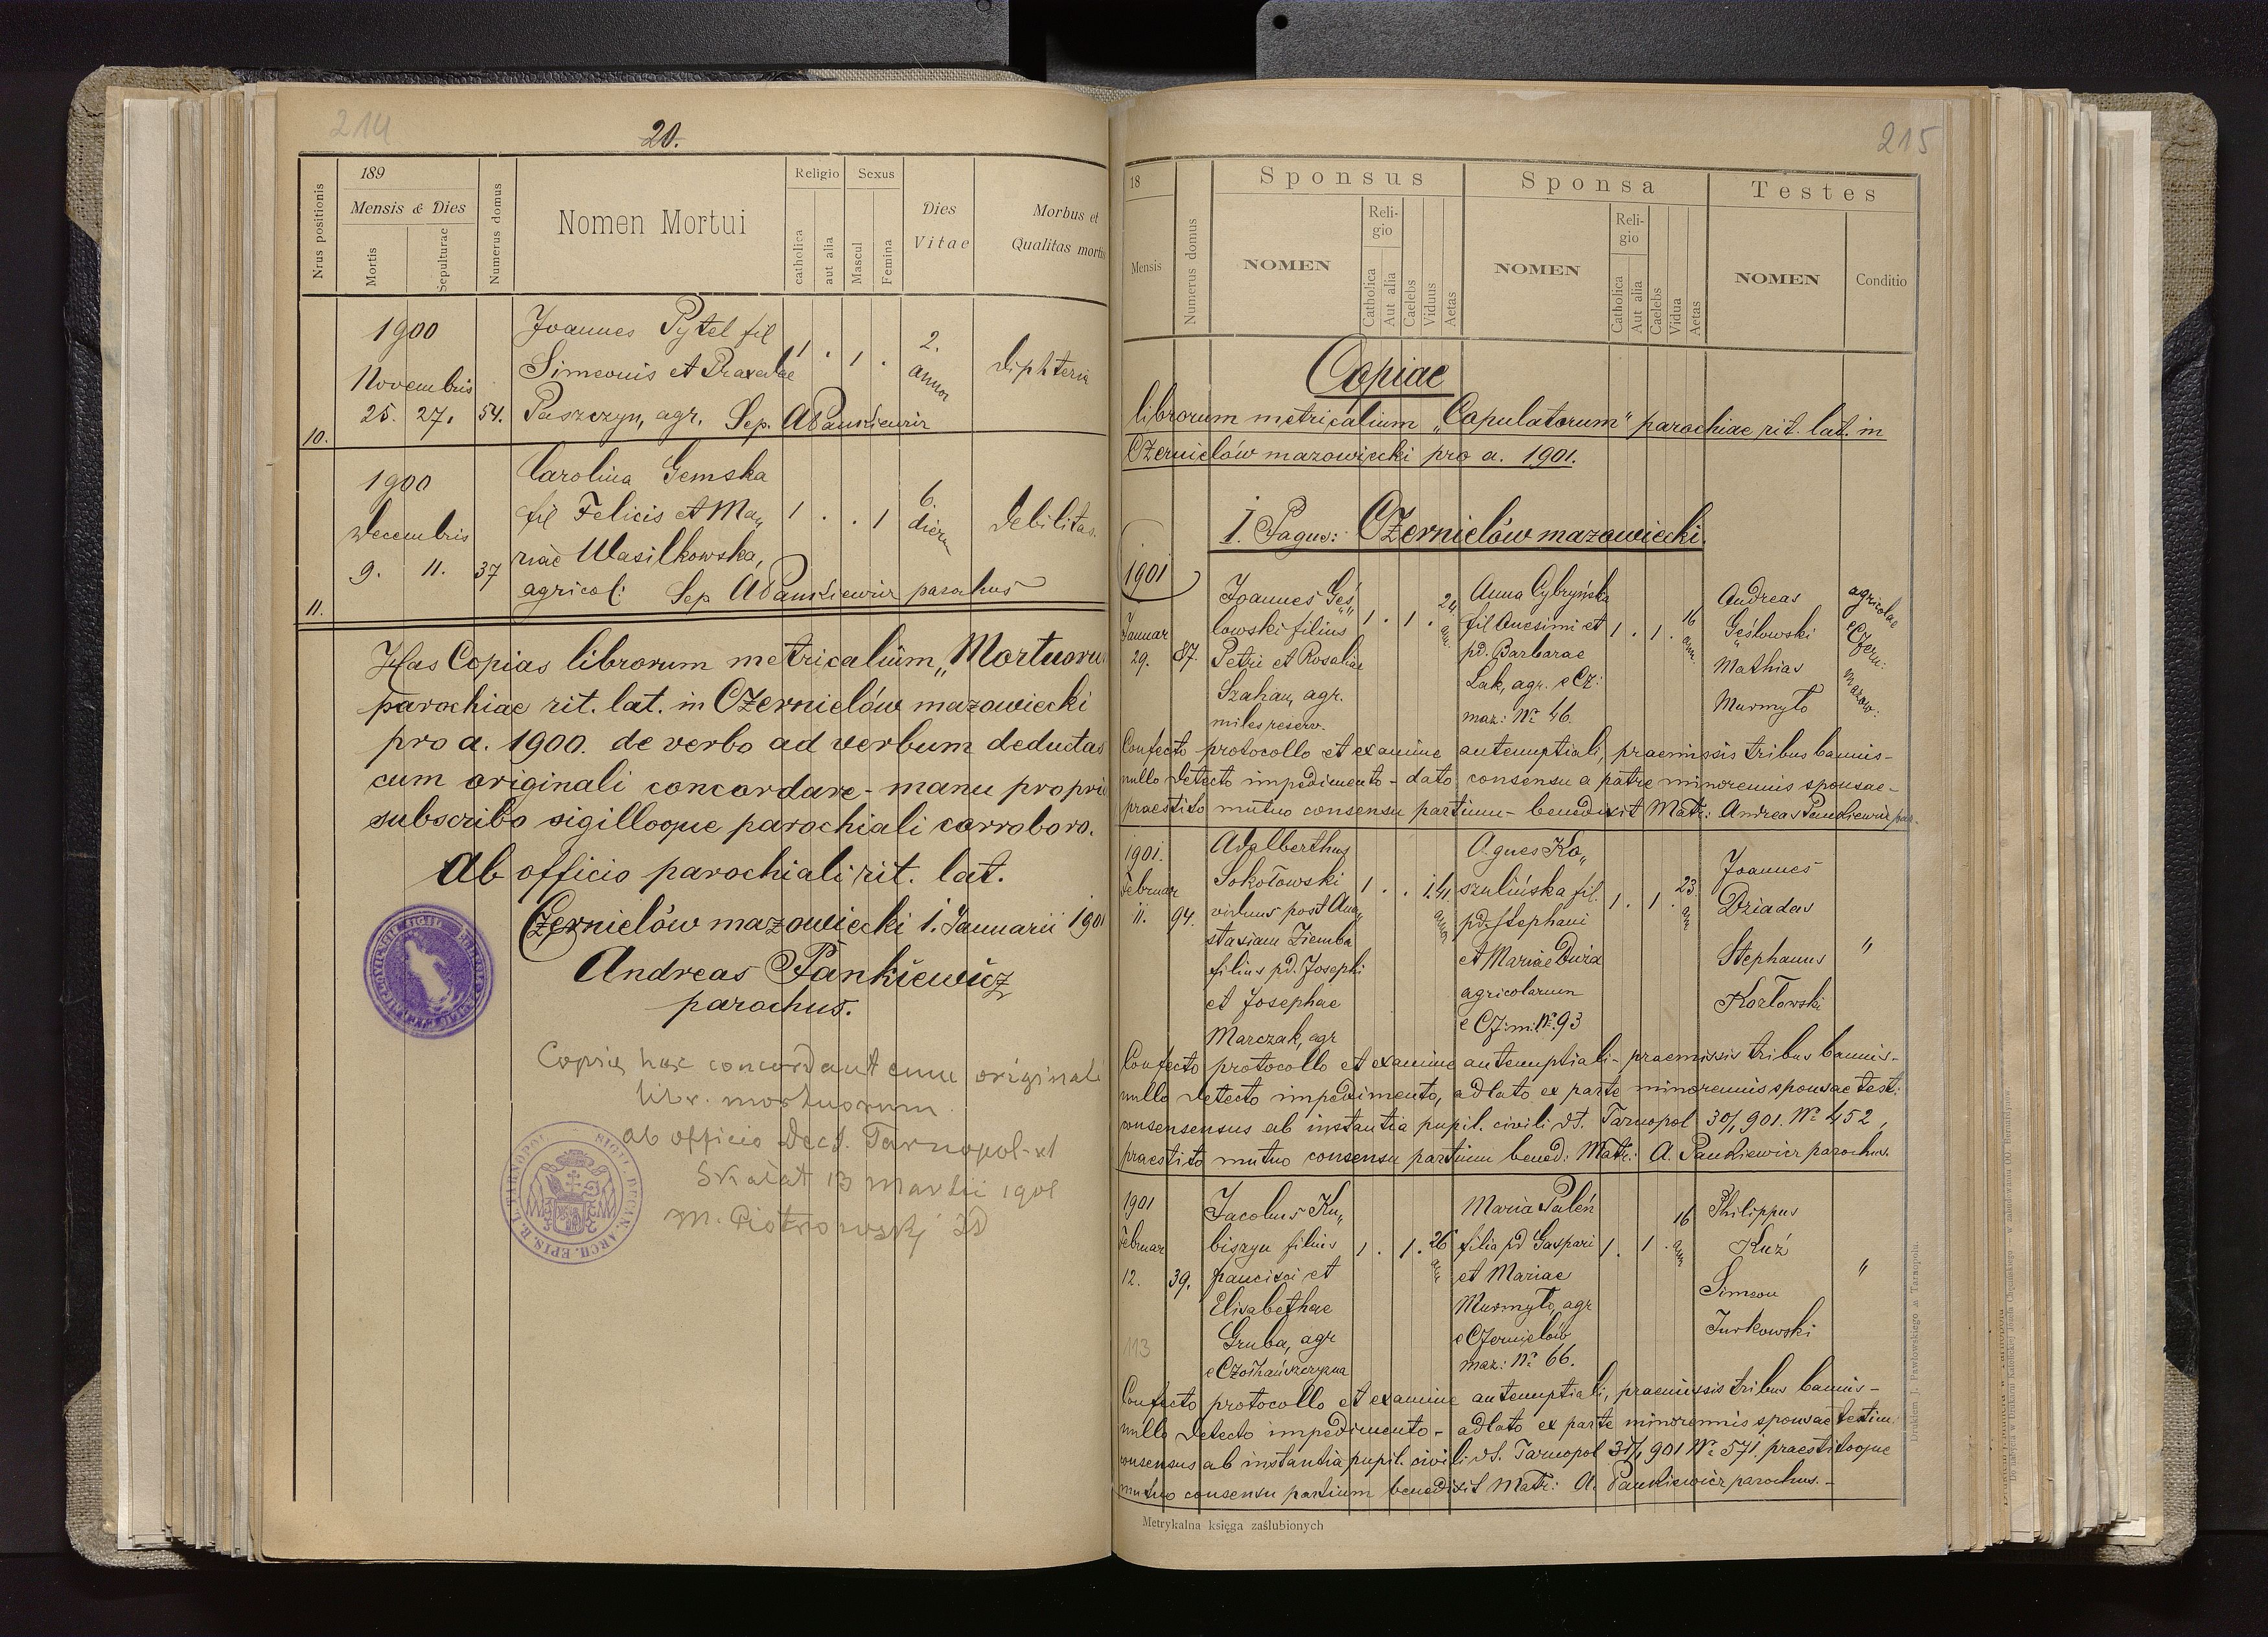 214
20.
Nrus positionis
189
Mensis & Dies
Mortis
Sepulturae
Numerus domus
Nomen Mortui
Religio
catholica
aut alia
Sexus
Mascul
Femina
Dies
Vitae
Morbus et
Qualitas mortis
1900
Novembris
25. 27. 54.
10.
Joannes Pytel fil
Simeonis et Praxedae
Paszczyn, agr. Sep. APankiewicz
1 . 1 .
2.
annor
diphteria
1900
Decembris
9. 11. 37
11.
Carolina Gemska
fil Felicis et Ma„
riae Wasilkowska,
agricol: Sep APankiewicz parochus
1 . . 1
6.
dierum
debilitas.
Has Copias librorum metricalium „Mortuorum
parochiae rit. lat. in Czernielów mazowiecki
pro a. 1900. de verbo ad verbum deductas
cum originali concordare - manu propria
subscribo sigilloque parochiali corroboro.
Ab officio parochiali rit. lat.
Czernielów mazowiecki 1. Januarii 1901
Andreas Pankiewicz
parochus.
Copia haec concordant cum originali
libr. mortuorum.
ab officio Dec. Tarnopol-
Skałat 13 Martii 1901
M. Piotrowski
215
18
Mensis
Numerus domus
Sponsus
NOMEN
Reli-
gio
Catholica
Aut alia
Caelebs
Viduus
Aetas
Sponsa
NOMEN
Reli-
gio
Catholica
Aut alia
Caelebs
Vidua
Aetas
Testes
NOMEN
Conditio
Copiae
librorum metricalium „Copulatorum" parochiae rit. lat. in
Czernielów mazowiecki pro a. 1901.
I. Pagus: Czernielów mazowiecki.
1901
Januar
29. 87.
Joannes Geś„
lowski filius
Petri et Rosaliae
Szahan, agr.
miles reserv.
1 . 1 . 24 ann.
Anna Cybryńska
fil Anesimi et
pd. Barbarae
Lak, agr. e Cz:
maz: No 46.
1 . 1 . 16 ann.
Andreas
Gęślowski
Mathias
Murmyło
agricolae
e Czern:
mazow:
Confecto protocollo et examine antenuptiali, praemissis tribus bannis -
nullo detecto impedimento - dato consensu a patre minorennis sponsae -
praestito mutuo consensu partium - benedixit Matr: Andreas Pankiewicz par.
1901.
Februar
11. 94.
Adalberthus
Sokołowski
viduus post Ana„
stasiam Ziemba
filius pd. Josephi
et Josephae
Marczak, agr
1 . . 1. 41 annor
Agnes Ko„
szulińska fil.
pd. Stephani
et Mariae Duda
agricolarum
e Cz: m: No 93
1 . 1 . 23 ann
Joannes
Dziadas
Stephanus
Kozłowski
"
Confecto protocollo et examine antenuptiali - praemissis tribus bannis -
nullo detecto impedimento, adlato ex parte minorennis sponsae test:
consensensus ab instantia pupil. civili dt. Tarnopol 30/1 901. No 452,
praestito mutuo consensu partium bened: Matr: A. Pankiewicz parochus.
1901
Februar
12. 39.
113
Jacobus Ku„
biszyn filius
Francisci et
Elisabethae
Gruba, agr
1 . 1 . 26 ann
Maria Paleń
filia pd Gaspari
et Mariae
Murmyło, agr
e Czernielów
maz: No 66.
1 . 1 . 16 ann
Philippus
Kuź
Simeon
Jurkowski
"
Confecto protocollo et examine antenuptiali, praemissis tribus bannis -
nullo detecto impedimento - adlato ex parte minorennis sponsae testim.
consensus ab instantia pupil. civili dt. Tarnopol 31/1 901 No 571 praestitoque
mutuo consensu partium benedixit Matr: A. Pankiewicz parochus. -
Metrykalna księga zaślubionych
Drukiem J. Pawłowskiego w Tarnopolu.